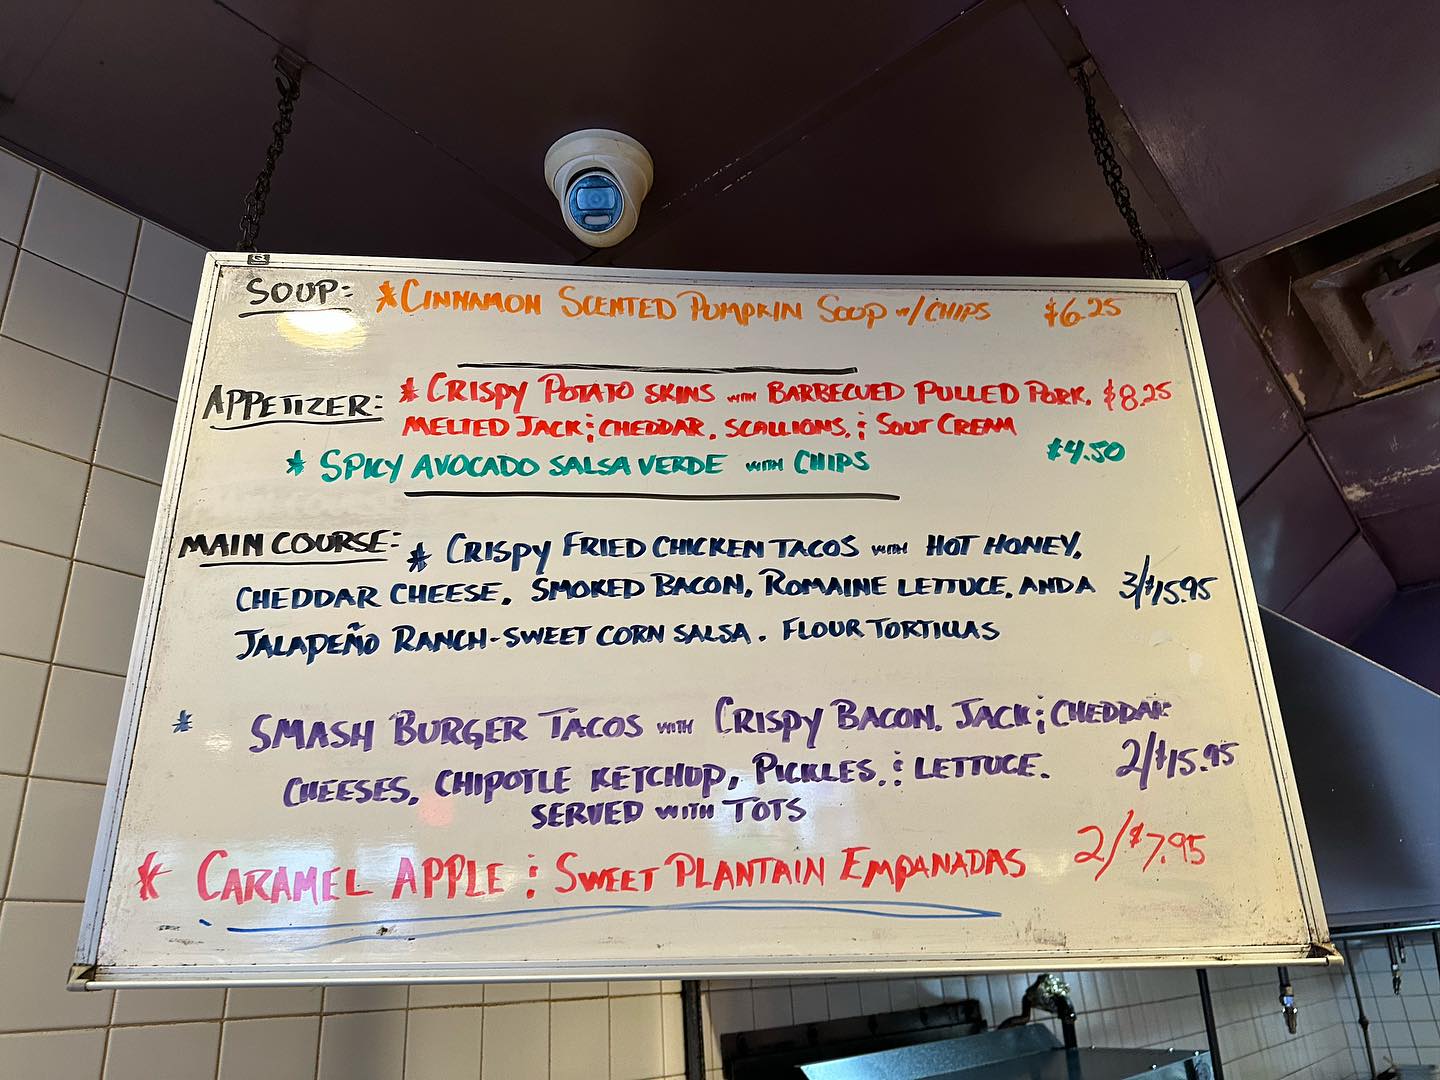 SOUP: *CINNAMON SCENTED PUMPKIN SOUP w/CHIPS $6.25
APPETIZER: * CRISPY POTATO SKINS WITH BARBECUED PULLED PORK, $8.25
MELTED JACK & CHEDDAR, SCALLIONS, & SOUR CREAM
* SPICY AVOCADO SALSA VERDE WITH CHIPS $4.50
MAIN COURSE: * CRISPY FRIED CHICKEN TACOS WITH HOT HONEY,
CHEDDAR CHEESE, SMOKED BACON, ROMAINE LETTUCE, AND A 3/$15.95
JALAPEÑO RANCH-SWEET CORN SALSA. FLOUR TORTILLAS
* SMASH BURGER TACOS WITH CRISPY BACON, JACK & CHEDDAR
CHEESES, CHIPOTLE KETCHUP, PICKLES, & LETTUCE. 2/$15.95
SERVED WITH TOTS
* CARAMEL APPLE & SWEET PLANTAIN EMPANADAS 2/$7.95